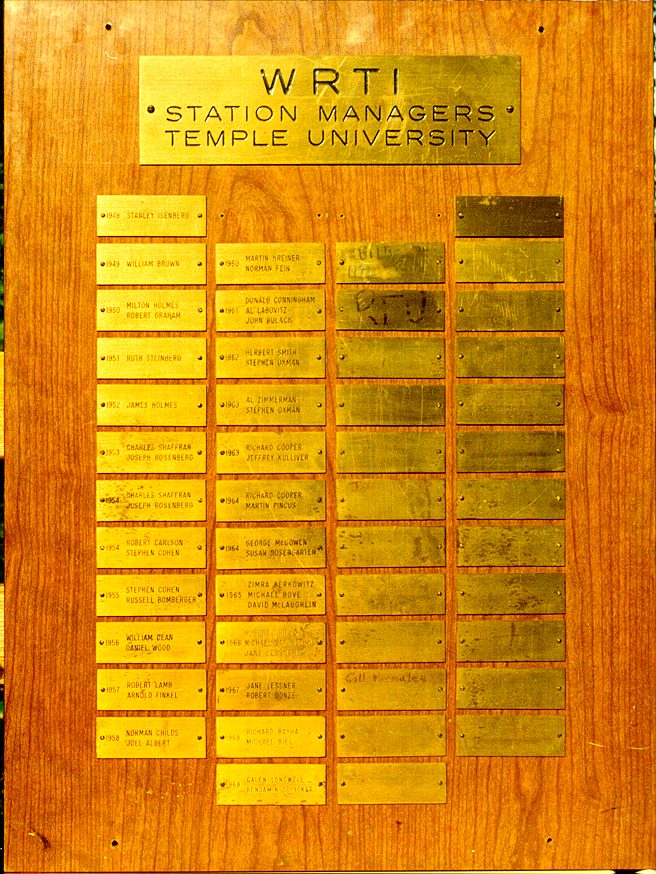 WRTI
STATION MANAGERS
TEMPLE UNIVERSITY
1948 STANLEY ISENBERG
1949 WILLIAM BROWN
1950 MILTON HOLMES
ROBERT GRAHAM
1951 RUTH STEINBERG
1952 JAMES HOLMES
1953 CHARLES SHAFFRAN
JOSEPH ROSENBERG
1954 CHARLES SHAFFRAN
JOSEPH ROSENBERG
1954 ROBERT CARLSON
STEPHEN COHEN
1955 STEPHEN COHEN
RUSSELL BOMBERGER
1956 WILLIAM DEAN
DANIEL WOOD
1957 ROBERT LAMB
ARNOLD FINKEL
1958 NORMAN CHILDS
JOEL ALBERT
1960 MARTIN KREINER
NORMAN FEIN
1961 DONALD CUNNINGHAM
AL LABOVITZ
JOHN BULACK
1962 HERBERT SMITH
STEPHEN OXMAN
1963 AL ZIMMERMAN
STEPHEN OXMAN
1963 RICHARD COOPER
JEFFREY KULLIVER
1964 RICHARD COOPER
MARTIN PINCUS
1964 GEORGE McGOWEN
SUSAN ROSENGARTEN
1965 ZIMRA BERKOWITZ
MICHAEL BOVE
DAVID McLAUGHLIN
1966 ROBERT
MICHAEL
JANE LESSNER
1967 JANE LESSNER
ROBERT
1968 RICHARD BAYHA
MICHAEL BIEL
1968 GALEN LONGWELL
BENJAMIN
RTU
Call